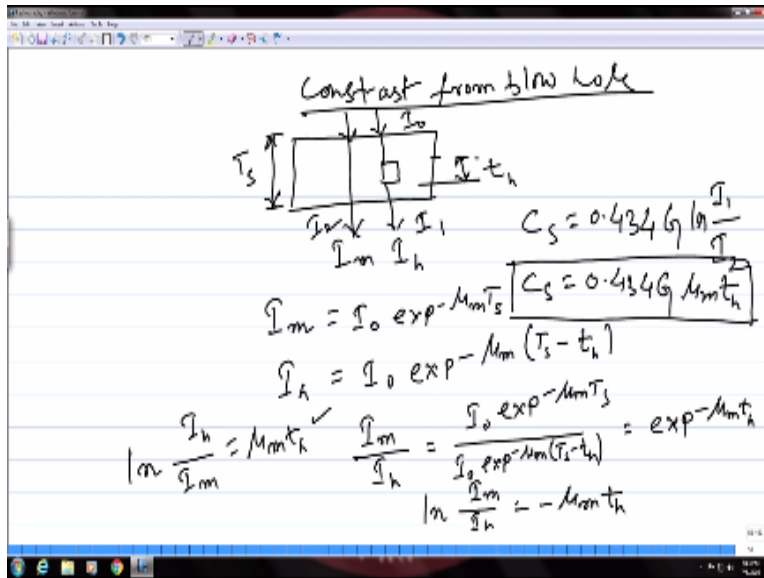 Constrast from blow hole
I₀
Tₛ
tₕ
I₂ I₁
Iₘ Iₕ
Cₛ = 0.434 G ln I₁/I₂
Cₛ = 0.434 G μₘ tₕ
Iₘ = I₀ exp^-μₘTₛ
Iₕ = I₀ exp^-μₘ(Tₛ - tₕ)
ln Iₕ/Iₘ = μₘtₕ ✓
Iₘ/Iₕ = I₀ exp^-μₘTₛ / I₀ exp^-μₘ(Tₛ-tₕ) = exp^-μₘtₕ
ln Iₘ/Iₕ = - μₘtₕ